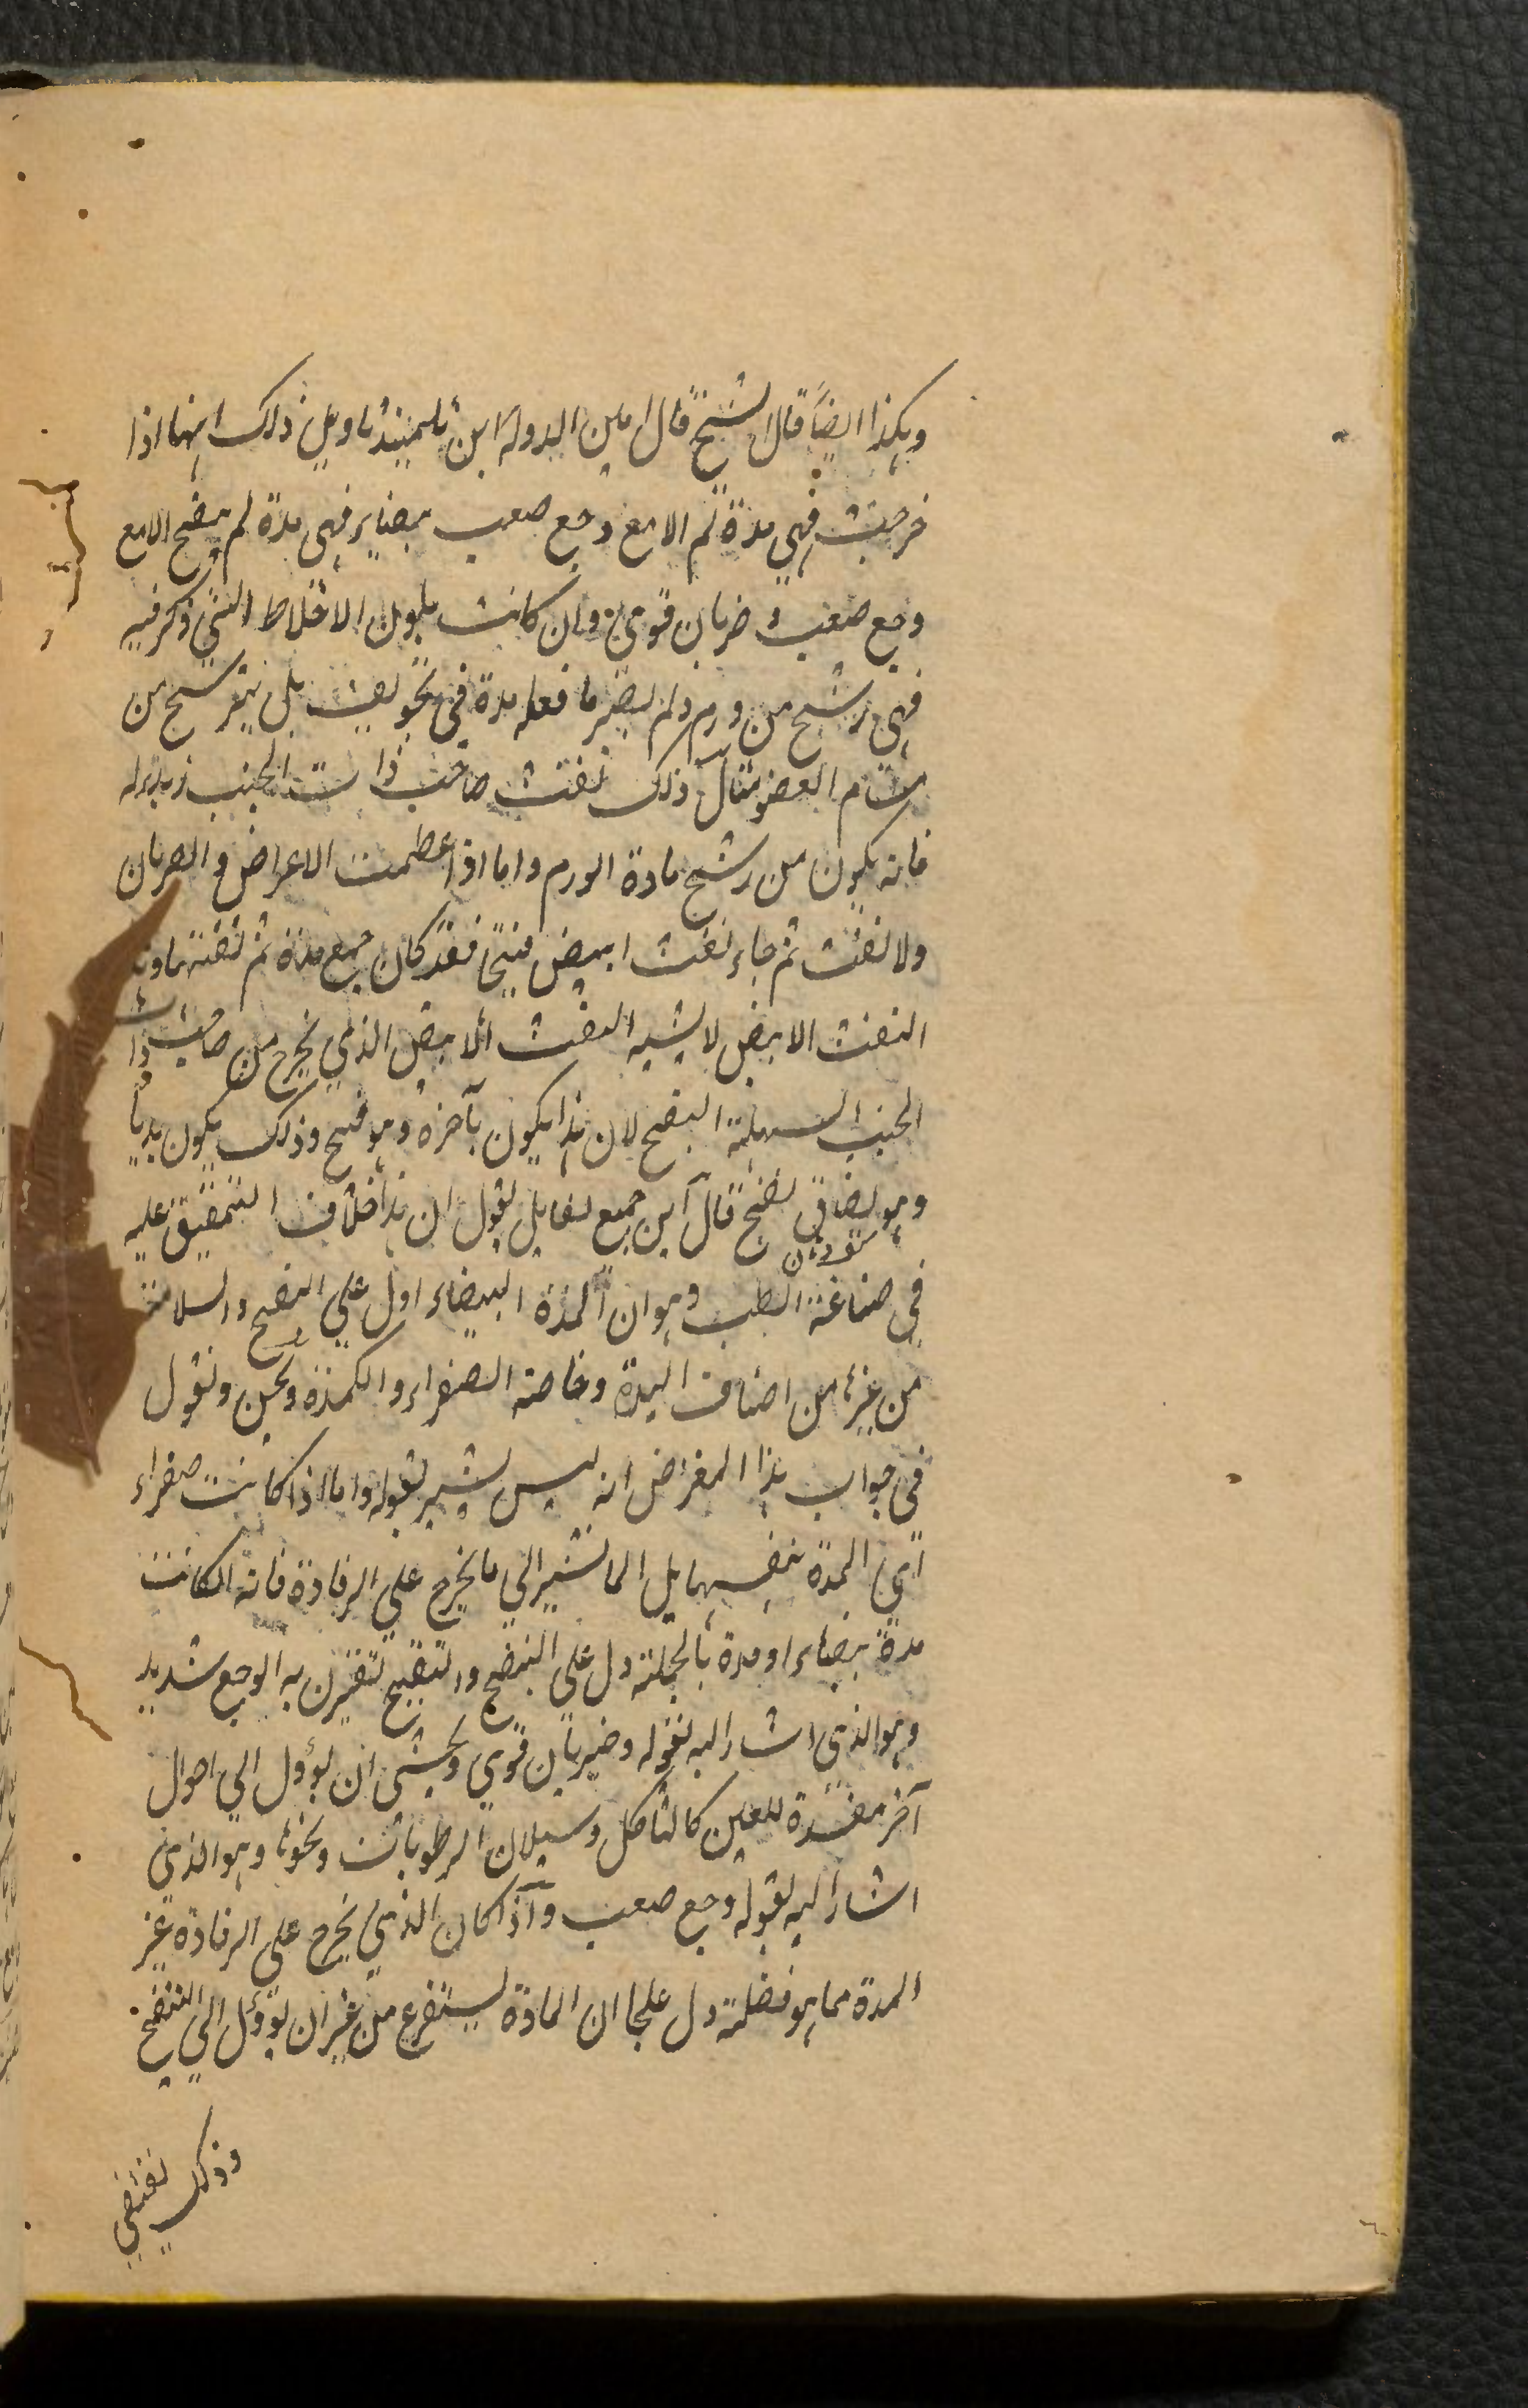 وهكذا ايضاً قال الشيخ قال امين الدولة ابن تلميذ تاويل ذلك انها اذا
خرجت فهي مدة لم الا مع وجع صعب بيضاء فهي مدة لم ينضج الا مع
وجع صعب و ضربان قوي وان كانت بلون الاخلاط التي ذكر فيه
فهي ترشح من ورم ولم يصر ما فعله مدة في تجويف بل يترشح من
مسام العضو مثال ذلك نفث صاحب ذات الجنب
فانه يكون من رشح مادة الورم واما اذا عظمت الاعراض و الضربان
ولا نفث ثم جاء نفث ابيض فقد كان جمع مدة ثم نفثه
النفث الابيض لا يشبه النفث الابيض الذي يخرج من صاحب ذات
الجنب السهلة النضج لان هذا يكون بآخره وهو قيح وذلك يكون
وهو نضج قال ابن جميع لقايل يقول ان هذا خلاف المتفق عليه
في صناعة الطب وهو ان المدة البيضاء ادل علي النضج والسلامة
من غيرها من اصناف المدة وخاصة الصفراء والكمدة ونحن ونقول
في جواب هذا المعترض انه ليس يشير بقوله واما اذا كانت صفراء
اي المدة بنفسها بل انما يشير الي ما يخرج علي الرفادة فانه ان كانت
مدة بيضاء او مدة بالجملة دل علي النضج والتقيح تقترن به الوجع شديد
وهو الذي اشار اليه بقوله وضربان قوي ويخشى ان يؤول الي احوال
آخر مفسدة للعين كالتاكل وسيلان الرطوبات ونحوها وهو الذي
اشار اليه بقوله وجع صعب واذا كان الذي يخرج علي الرفادة غير
المدة مما هو فضلة دل علي ان المادة يستفرغ من غير ان تؤول الي التنضج
وذلك يقتضي